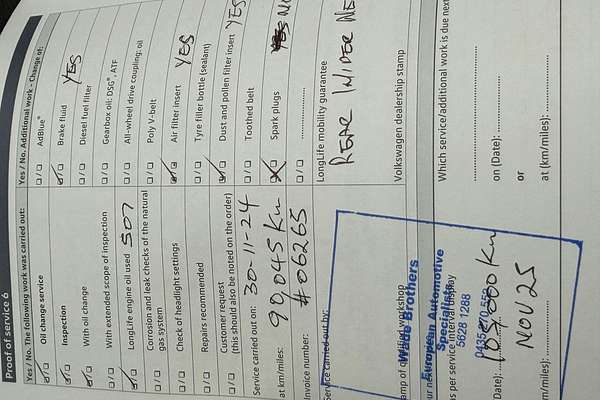 Proof of service 6
Yes / No. The following work was carried out:
Oil change service
Inspection
With oil change
With extended scope of inspection
LongLife engine oil used 507
Corrosion and leak checks of the natural
gas system
Check of headlight settings
Repairs recommended
Customer request
(this should also be noted on the order)
Service carried out on: 30-11-24
at km/miles: 90,045 Km
Invoice number: #06265
Service carried out by:
Wade Brothers
European Automotive
Specialists
5628 1288
amp of qualified workshop
as per service interval display
(Date):
NOV 25
m/miles):
Yes / No. Additional work - Change of:
AdBlue®
Brake fluid YES
Diesel fuel filter
Gearbox oil: DSG®, ATF
All-wheel drive coupling: oil
Poly V-belt
Air filter insert YES
Tyre filler bottle (sealant)
Dust and pollen filter insert YES
Toothed belt
Spark plugs NO
LongLife mobility guarantee
REAR
Volkswagen dealership stamp
Which service/additional work is due next
on (Date):
or
at (km/miles):